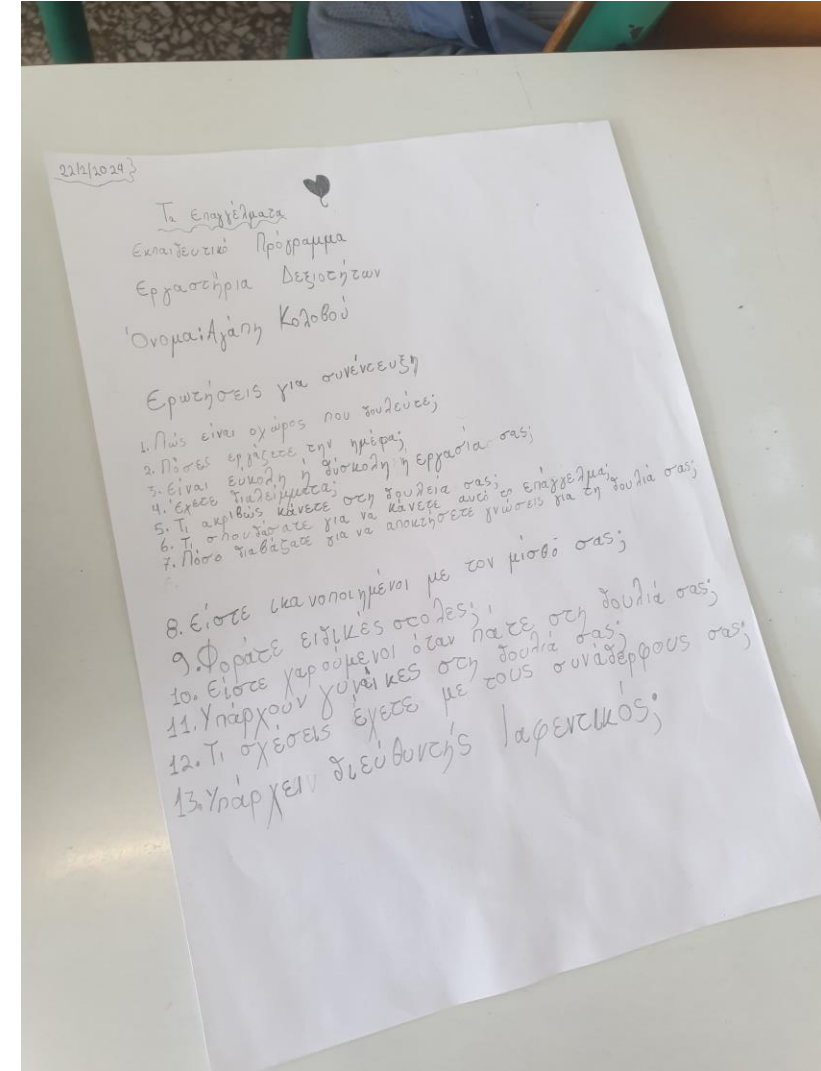 22/2/2024
Τα επαγγέλματα
Εκπαιδευτικό Πρόγραμμα
Εργαστήρια Δεξιοτήτων
Όνομα: Αγάπη Κολοβού
Ερωτήσεις για συνέντευξη
1. Πώς είναι ο χώρος που δουλεύτε;
2. Πόσες εργάζετε την ημέρα;
3. Είναι εύκολη ή δύσκολη η εργασία σας;
4. Έχετε διαλείμματα;
5. Τι ακριβώς κάνετε στη δουλεία σας;
6. Τι σπουδάσατε για να κάνετε αυτό το επάγγελμα;
7. Πόσο διαβάζατε για να αποκτήσετε γνώσεις για τη δουλιά σας;
8. Είστε ικανοποιημένοι με τον μισθό σας;
9. Φοράτε ειδικές στολές;
10. Είστε χαρούμενοι όταν πάτε στη δουλιά σας;
11. Υπάρχουν γυναίκες στη δουλιά σας;
12. Τι σχέσεις έχετε με τους συνάδερφους σας;
13. Υπάρχει διεύθυντής /αφεντικός;